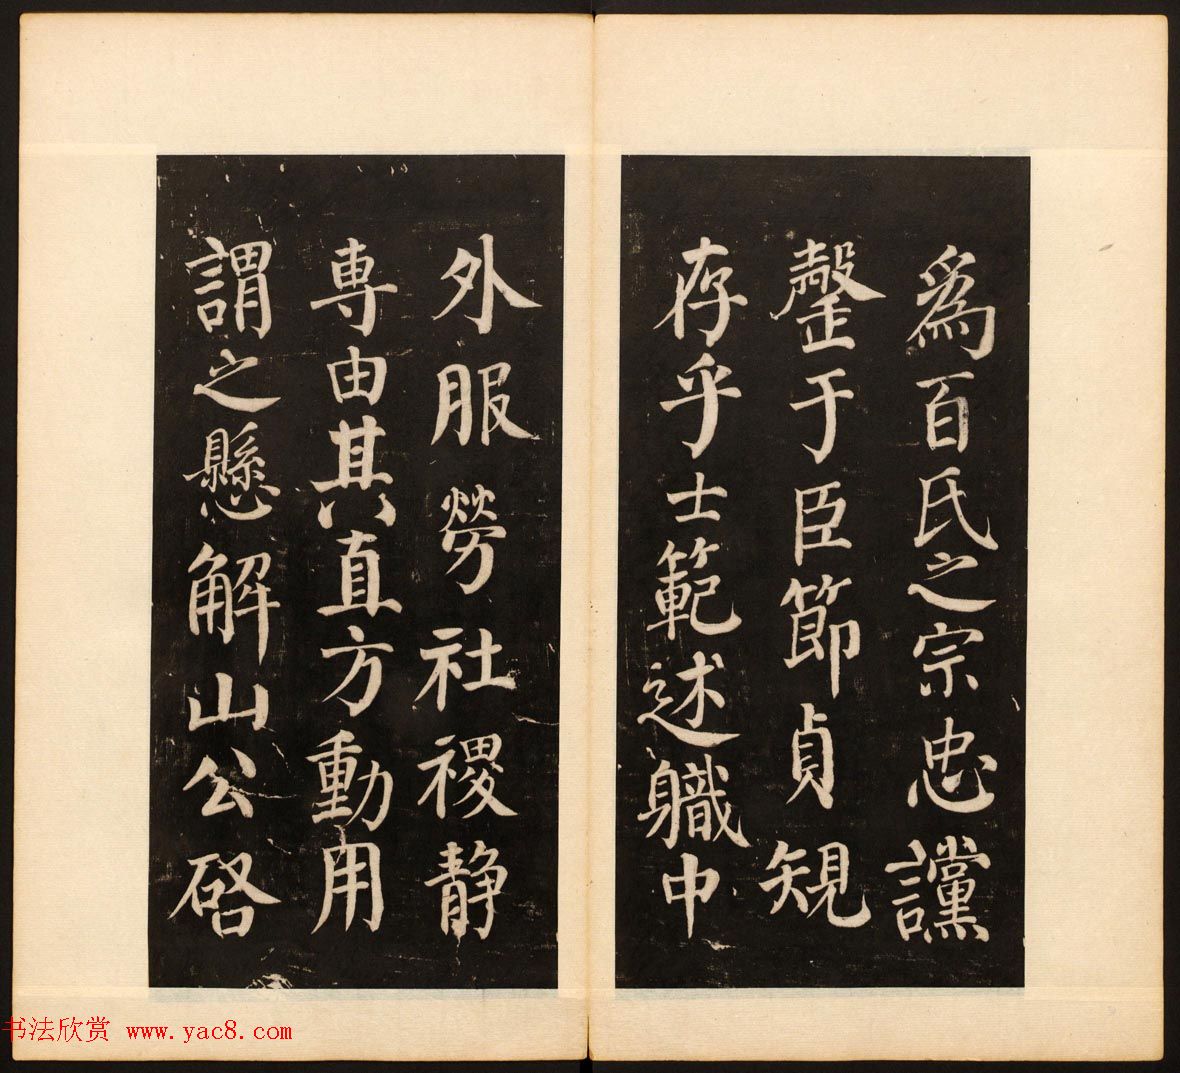 為百氏之宗忠讜
罄于臣節貞規
存乎士範述職中
外服勞社稷靜
專由其直方動用
謂之懸解山公啓
书法欣赏 www.yac8.com